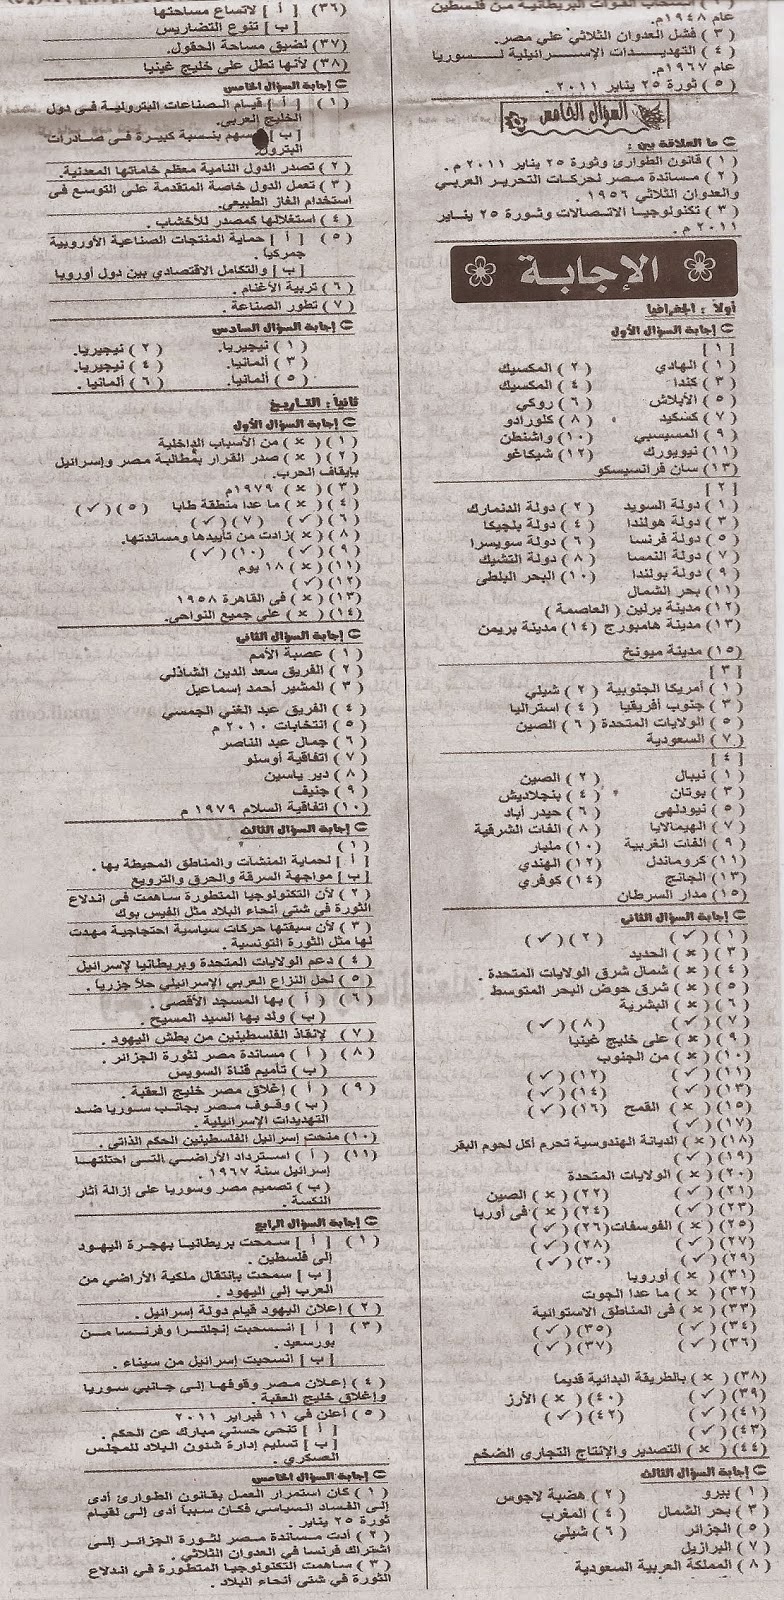 عام ١٩٤٨م.
( ٣ ) فشل العدوان الثلاثي على مصر.
( ٤ ) التهديدات الإسرائيلية لسوريا
عام ١٩٦٧م.
( ٥ ) ثورة ٢٥ يناير ٢٠١١ .
السؤال الخامس
ما العلاقة بين :
( ١ ) قانون الطوارئ وثورة ٢٥ يناير ٢٠١١ م .
( ٢ ) مساندة مصر لحركات التحرير العربي
والعدوان الثلاثي ١٩٥٦ .
( ٣ ) تكنولوجيا الاتصالات وثورة ٢٥ يناير
٢٠١١ م .
الإجابة
أولاً : الجغرافيا
إجابة السؤال الأول
[ ١ ]
( ١ ) الهادي ( ٢ ) المكسيك
( ٣ ) كندا ( ٤ ) المكسيك
( ٥ ) الأبلاش ( ٦ ) روكي
( ٧ ) كسكيد ( ٨ ) كلورادو
( ٩ ) المسيسبي (١٠) واشنطن
(١١) نيويورك (١٢) شيكاغو
(١٣) سان فرانسيسكو
[ ٢ ]
( ١ ) دولة السويد ( ٢ ) دولة الدنمارك
( ٣ ) دولة هولندا ( ٤ ) دولة بلجيكا
( ٥ ) دولة فرنسا ( ٦ ) دولة سويسرا
( ٧ ) دولة النمسا ( ٨ ) دولة التشيك
( ٩ ) دولة بولندا (١٠) البحر البلطى
(١١) بحر الشمال
(١٢) مدينة برلين ( العاصمة )
(١٣) مدينة هامبورج (١٤) مدينة بريمن
(١٥) مدينة ميونخ
[ ٣ ]
( ١ ) أمريكا الجنوبية ( ٢ ) شيلي
( ٣ ) جنوب أفريقيا ( ٤ ) استراليا
( ٥ ) الولايات المتحدة ( ٦ ) الصين
( ٧ ) السعودية
[ ٤ ]
( ١ ) نيبال ( ٢ ) الصين
( ٣ ) بوتان ( ٤ ) بنجلاديش
( ٥ ) نيودلهى ( ٦ ) حيدر آباد
( ٧ ) الهيمالايا ( ٨ ) الغات الشرقية
( ٩ ) الغات الغربية (١٠) مليار
(١١) كروماندل (١٢) الهندي
(١٣) الجانج (١٤) كوفري
(١٥) مدار السرطان
إجابة السؤال الثانى
(١) (✓) (٢) (✓)
(٣) (×) الحديد
(٤) (×) شمال شرق الولايات المتحدة .
(٥) (×) شرق حوض البحر المتوسط .
(٦) (×) البشرية
(٧) (✓) (٨) (✓)
(٩) (×) على خليج غينيا
(١٠) (×) من الجنوب
(١١) (✓) (١٢) (✓)
(١٣) (✓) (١٤) (✓)
(١٥) (×) القمح (١٦) (✓)
(١٧) (✓)
(١٨) (×) الديانة الهندوسية تحرم أكل لحوم البقر
(١٩) (✓)
(٢٠) (×) الولايات المتحدة
(٢١) (✓) (٢٢) (×) الصين
(٢٣) (✓) (٢٤) (×) فى أوربا
(٢٥) (×) الفوسفات (٢٦) (✓)
(٢٧) (✓) (٢٨) (✓)
(٢٩) (✓) (٣٠) (✓)
(٣١) (×) أوروبا
(٣٢) (×) ما عدا الجوت
(٣٣) (×) فى المناطق الاستوائية
(٣٤) (✓) (٣٥) (✓)
(٣٦) (✓) (٣٧) (✓)
(٣٨) (×) بالطريقة البدائية قديماً
(٣٩) (✓) (٤٠) (×) الأرز
(٤١) (✓) (٤٢) (✓)
(٤٣) (✓)
(٤٤) (×) التصدير والإنتاج التجارى الضخم
إجابة السؤال الثالث
( ١ ) بيرو ( ٢ ) هضبة لاجوس
( ٣ ) بحر الشمال ( ٤ ) المغرب
( ٥ ) الجزائر ( ٦ ) شيلي
( ٧ ) البرازيل
( ٨ ) المملكة العربية السعودية
(٣٦) [ أ ] لاتساع مساحتها
[ ب ] تنوع التضاريس
(٣٧) لضيق مساحة الحقول.
(٣٨) لأنها تطل على خليج غينيا
إجابة السؤال الخامس
( ١ ) [ أ ] قيام الصناعات البترولية فى دول
الخليج العربي.
[ ب ] تسهم بنسبة كبيرة فى صادرات
البترول.
( ٢ ) تصدر الدول النامية معظم خاماتها المعدنية.
( ٣ ) تعمل الدول خاصة المتقدمة على التوسع فى
استخدام الغاز الطبيعي.
( ٤ ) استغلالها كمصدر للأخشاب .
( ٥ ) [ أ ] حماية المنتجات الصناعية الأوروبية
جمركياً .
[ ب ] والتكامل الاقتصادي بين دول أوروبا
( ٦ ) تربية الأغنام .
( ٧ ) تطور الصناعة .
إجابة السؤال السادس
( ١ ) نيجيريا. ( ٢ ) نيجيريا.
( ٣ ) ألمانيا. ( ٤ ) نيجيريا.
( ٥ ) ألمانيا. ( ٦ ) ألمانيا .
ثانياً : التاريخ
إجابة السؤال الأول
(١) (×) من الأسباب الداخلية
(٢) (×) صدر القرار بمطالبة مصر وإسرائيل
بإيقاف الحرب.
(٣) (×) ١٩٧٩م
(٤) (×) ما عدا منطقة طابا (٥) (✓)
(٦) (✓) (٧) (✓)
(٨) (×) زادت من تأييدها ومساندتها.
(٩) (✓) (١٠) (✓)
(١١) (×) ١٨ يوم
(١٢) (✓)
(١٣) (×) فى القاهرة ١٩٥٨
(١٤) (×) على جميع النواحى.
إجابة السؤال الثانى
( ١ ) عصبة الأمم
( ٢ ) الفريق سعد الدين الشاذلي
( ٣ ) المشير أحمد إسماعيل
( ٤ ) الفريق عبد الغني الجمسي
( ٥ ) انتخابات ٢٠١٠ م
( ٦ ) جمال عبد الناصر
( ٧ ) اتفاقية أوسلو
( ٨ ) دير ياسين
( ٩ ) جنيف
(١٠) اتفاقية السلام ١٩٧٩ م
إجابة السؤال الثالث
( ١ )
[ أ ] لحماية المنشآت والمناطق المحيطة بها .
[ ب ] مواجهة السرقة والحرق والترويع
( ٢ ) لأن التكنولوجيا المتطورة ساهمت فى اندلاع
الثورة في شتى أنحاء البلاد مثل الفيس بوك
( ٣ ) لأن سبقتها حركات سياسية احتجاجية مهدت
لها مثل الثورة التونسية .
( ٤ ) دعم الولايات المتحدة وبريطانيا لإسرائيل
( ٥ ) لحل النزاع العربي الإسرائيلي حلاً جزرياً .
( ٦ ) ( أ ) بها المسجد الأقصى .
( ب ) ولد بها السيد المسيح .
( ٧ ) لإنقاذ الفلسطينين من بطش اليهود .
( ٨ ) ( أ ) مساندة مصر لثورة الجزائر .
( ب ) تأميم قناة السويس
( ٩ ) ( أ ) إغلاق مصر خليج العقبة .
( ب ) وقوف مصر بجانب سوريا ضد
التهديدات الإسرائيلية .
(١٠) منحت إسرائيل الفلسطينين الحكم الذاتي .
(١١) ( أ ) استرداد الأراضي التى احتلتها
إسرائيل سنة ١٩٦٧ .
( ب ) تصميم مصر وسوريا على إزالة آثار
النكسة .
إجابة السؤال الرابع
( ١ ) [ أ ] سمحت بريطانيا بهجرة اليهود
إلى فلسطين .
[ ب ] سمحت بإنتقال ملكية الأراضي من
العرب إلى اليهود .
( ٢ ) إعلان اليهود قيام دولة إسرائيل .
( ٣ ) [ أ ] انسحبت إنجلترا وفرنسا من
بورسعيد .
[ ب ] انسحبت إسرائيل من سيناء .
( ٤ ) إعلان مصر وقوفها إلى جانبي سوريا
وإغلاق خليج العقبة .
( ٥ ) أعلن في ١١ فبراير ٢٠١١
[ أ ] تنحي حسني مبارك عن الحكم .
[ ب ] تسليم إدارة شئون البلاد للمجلس
العسكري .
إجابة السؤال الخامس
( ١ ) كان استمرار العمل بقانون الطوارئ أدى
إلى الفساد السياسي فكان سبباً أدى إلى لقيام
ثورة ٢٥ يناير .
( ٢ ) أدت مساندة مصر لثورة الجزائر إلى
اشتراك فرنسا في العدوان الثلاثي .
( ٣ ) ساهمت التكنولوجيا المتطورة في اندلاع
الثورة في شتى أنحاء البلاد .